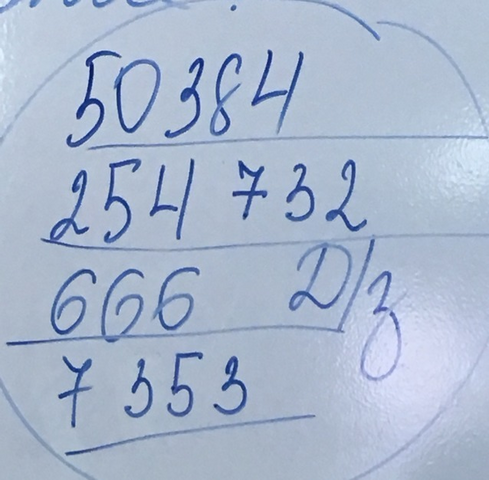 50384
254 732
666 Д/з
7353